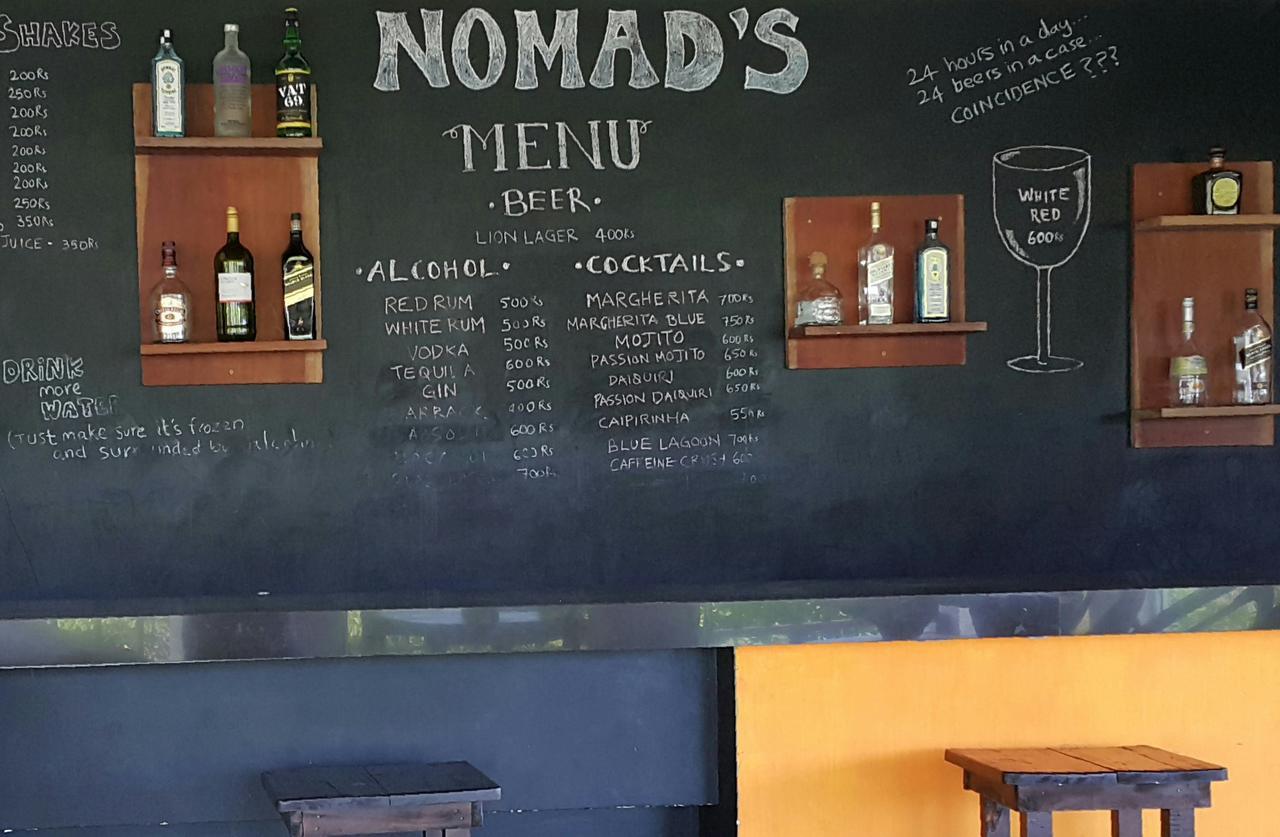 SHAKES
200Rs
250Rs
200Rs
200Rs
200Rs
200Rs
200Rs
250Rs
350Rs
JUICE - 350Rs
DRINK
more
WATER
(Just make sure it's frozen
and surrounded by
VAT
69
NOMAD'S
MENU
·BEER·
LION LAGER 400Rs
·ALCOHOL·
RED RUM 500Rs
WHITE RUM 500Rs
VODKA 500Rs
TEQUILA 600Rs
GIN 500Rs
ARRACK 400Rs
600Rs
600Rs
700Rs
·COCKTAILS·
MARGHERITA 700Rs
MARGHERITA BLUE 750Rs
MOJITO 600Rs
PASSION MOJITO 650Rs
DAIQUIRI 600Rs
PASSION DAIQUIRI 650Rs
CAIPIRINHA 550Rs
BLUE LAGOON 700Rs
CAFFEINE CRUSH
24 hours in a day...
24 beers in a case...
COINCIDENCE ???
WHITE
RED
600Rs